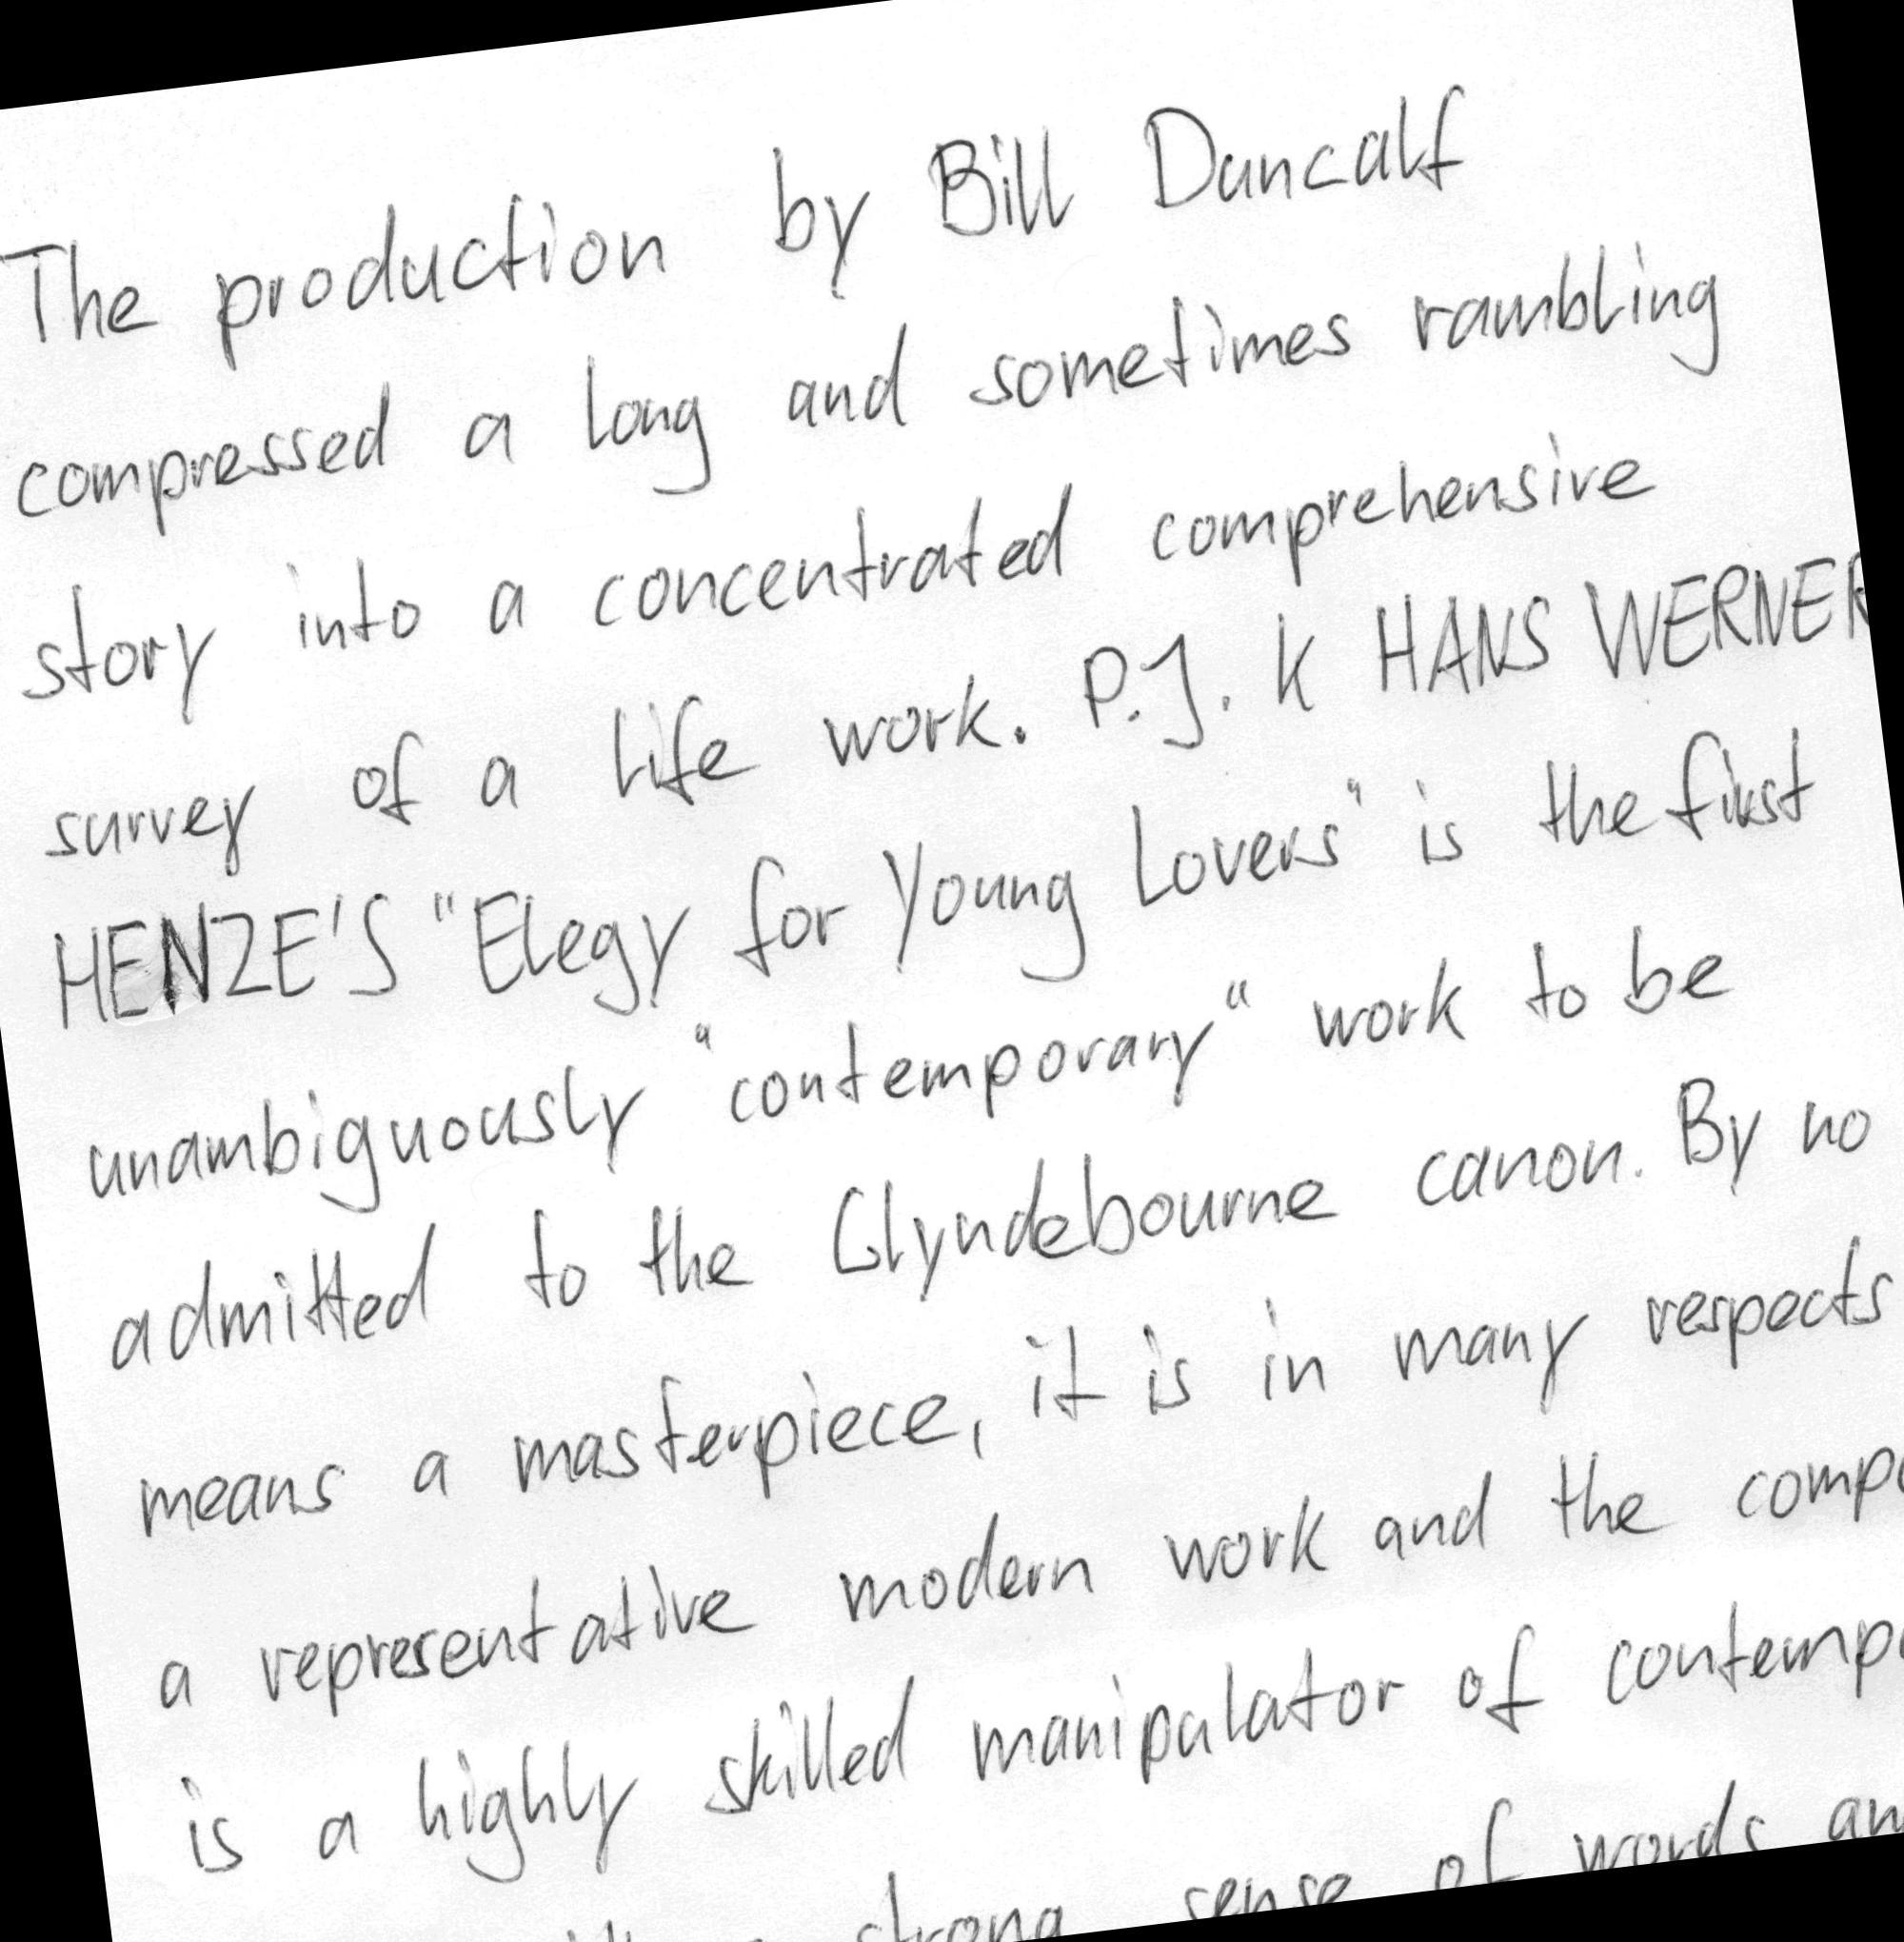 The production by Bill Duncalf
compressed a long and sometimes rambling
story into a concentrated comprehensive
survey of a life work. P.J. K HANS WERNER
HENZE'S "Elegy for Young Lovers" is the first
unambiguously "contemporary" work to be
admitted to the Glyndebourne canon. By no
means a masterpiece, it is in many respects
a representative modern work and the
is a highly skilled manipulator of
strong sense of words